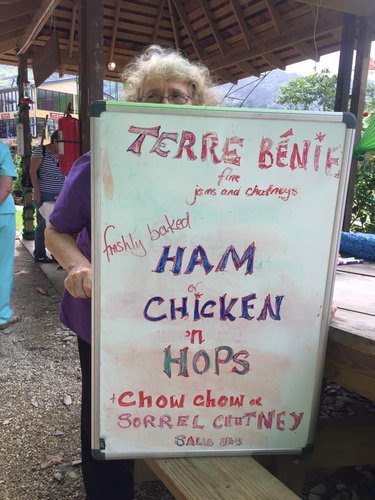 TERRE BÉNIE
fine
jams and chutneys
freshly baked
HAM
or
CHICKEN
'n
HOPS
+ CHOW CHOW or
SORREL CHUTNEY